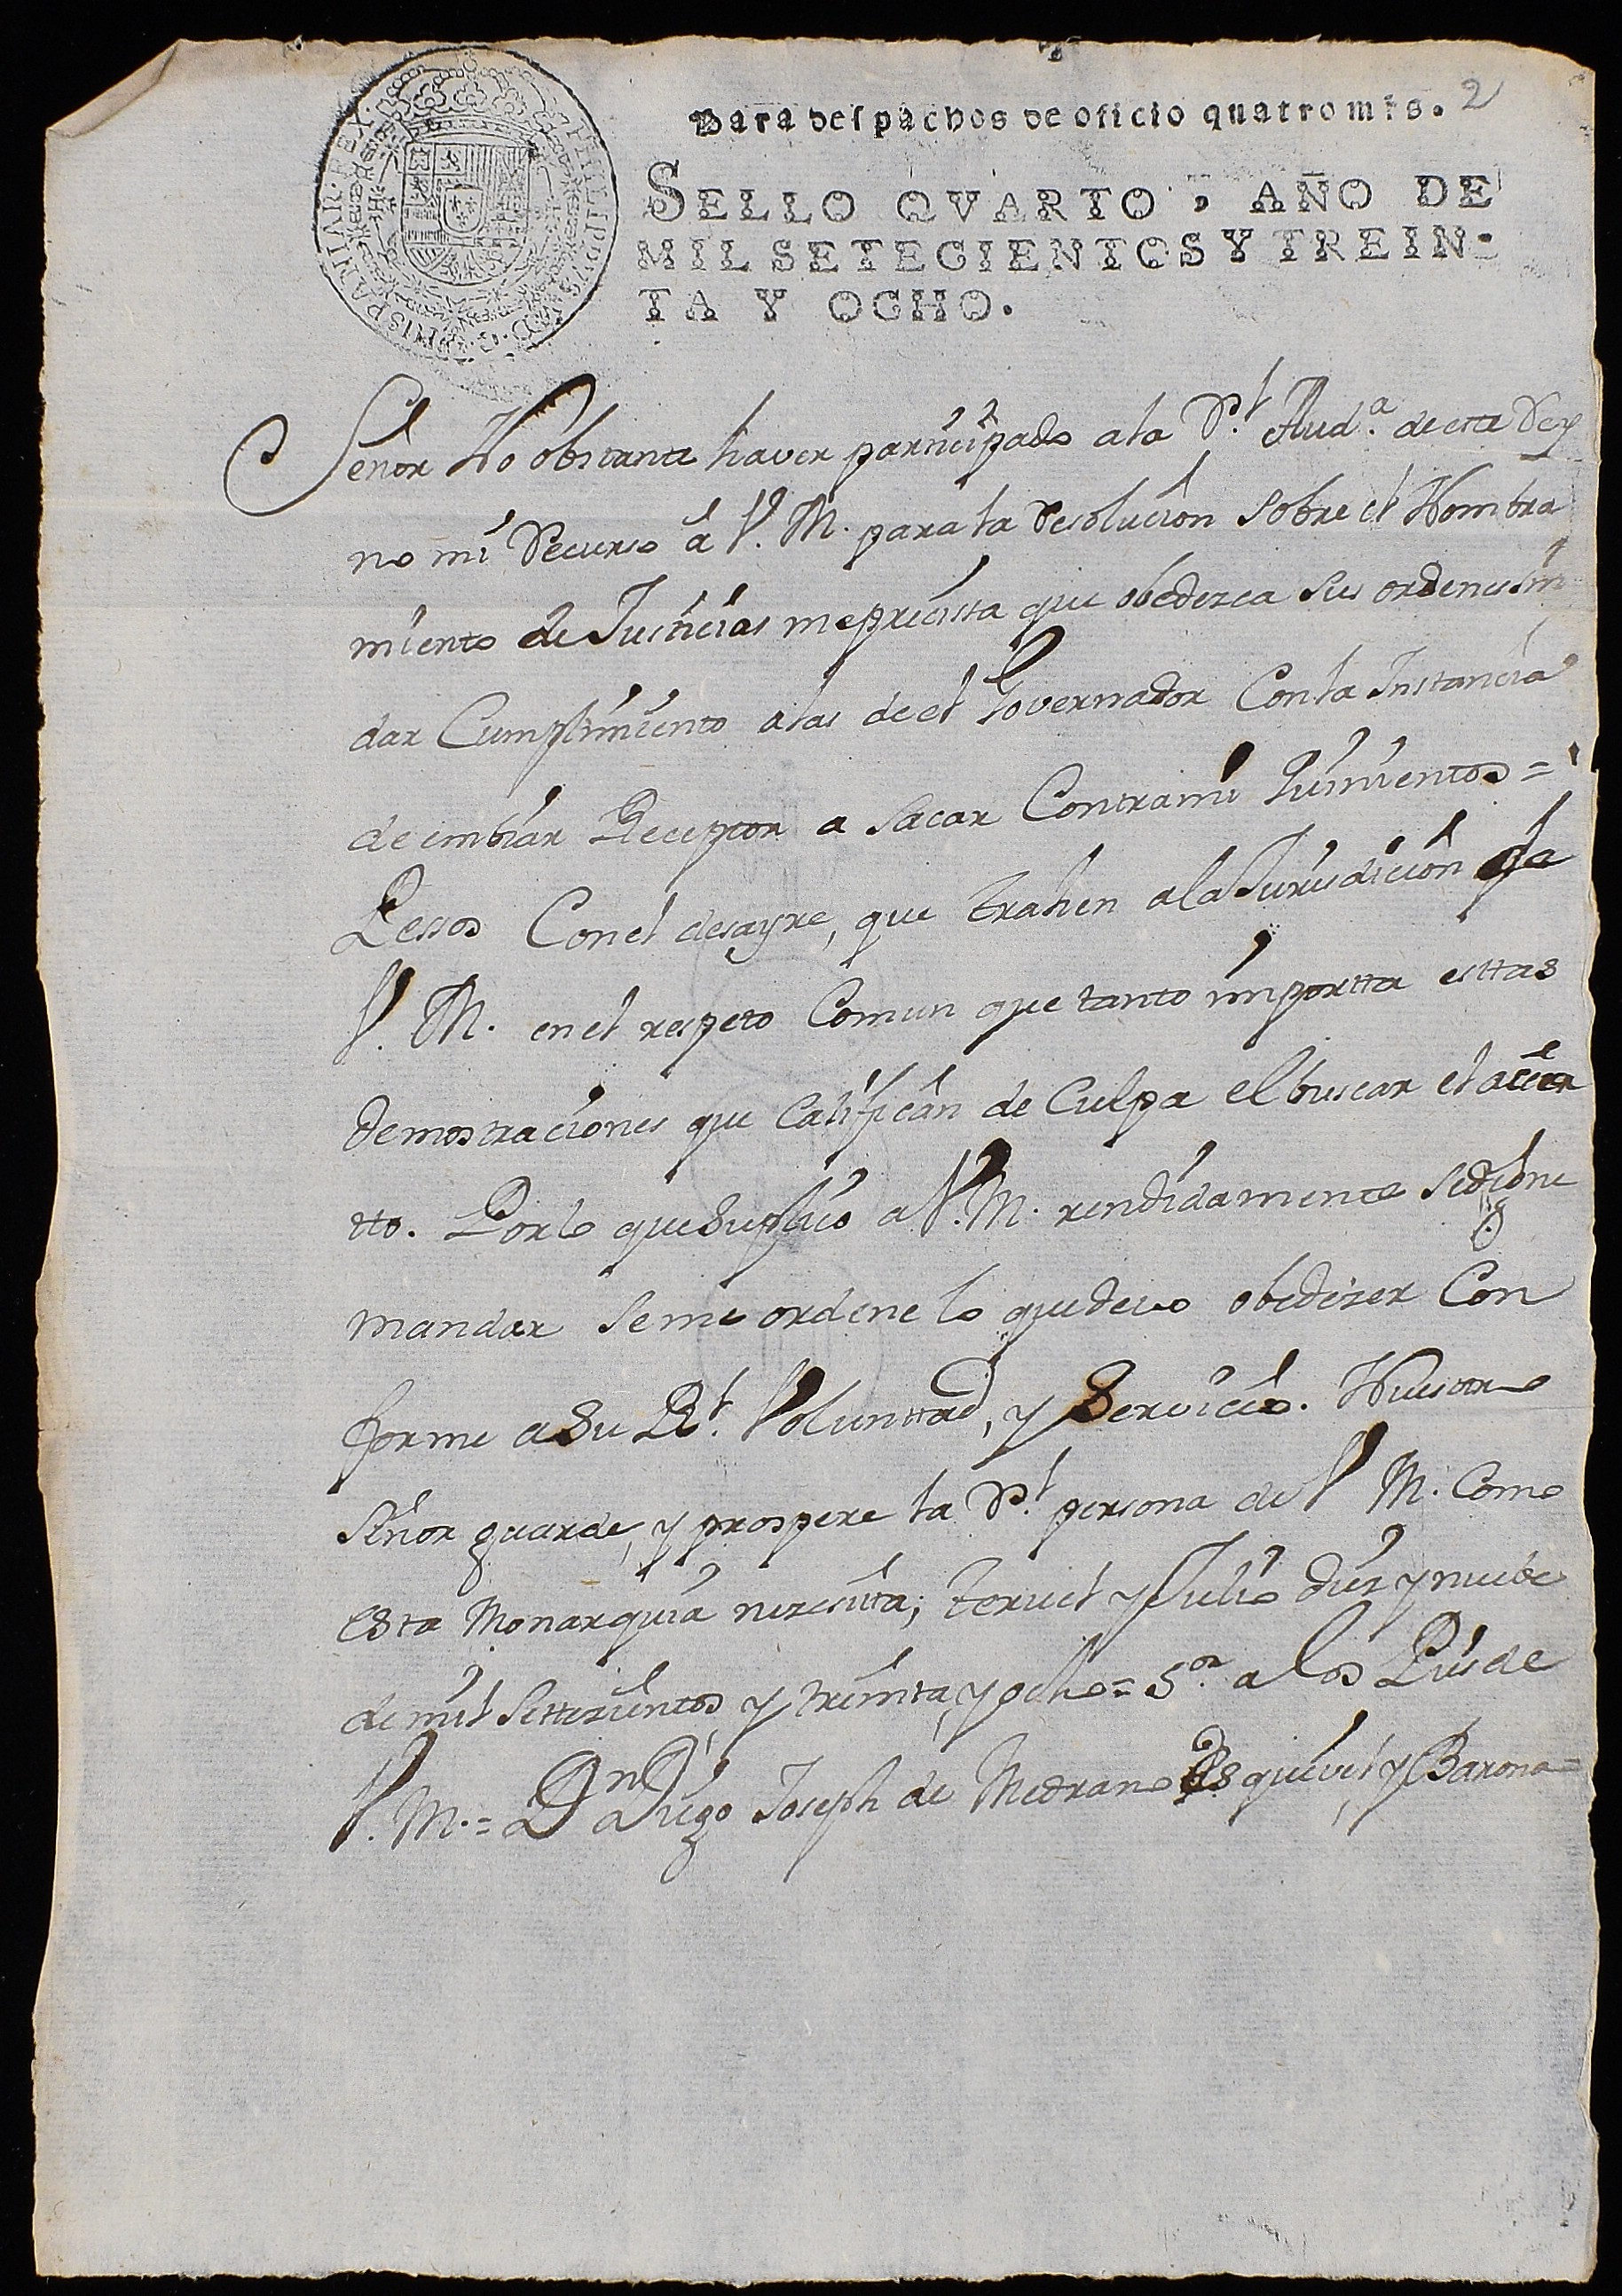 2
Para despachos de oficio quatro mrs.
SELLO QVARTO, AÑO DE
MIL SETECIENTOS Y TREIN-
TA Y OCHO.
PHILIPPVS V D G HISPANIAR REX
Señor No obstante haver participado ala Rl. Auda. de esta Rey
no mi Recurso â V. M. para la Resolucion sobre el Nombra
miento de Justicias me preçissa que obedezca sus ordenes sin
dar Cumplimiento alas de el Governador Con la Instancia
de embiar Receptor a sacar Contrami Quinientos =
Pessos Con el desayre, que trahen ala Jurisdicion de
V. M. en el respeto Comun que tanto importta esttas
demostraciones que Califican de Culpa el buscar el acier
tto. Porlo que Suplico a V. M. rendidamente se digne
mandar se me ordene lo que devo obedezer Con
forme a Su Rl. Voluntad, y Servicio. Nuestro
Señor guarde, y prospere la Rl. persona de V M. Como
esta Monarquia nezesita; Teruel y Julio diez y nuebe
de mil Settezientos, y treinta, y ocho = Sor. a los Pies de
V. M. = Dn Diego Joseph de Medrano Esquivel, y Barona =